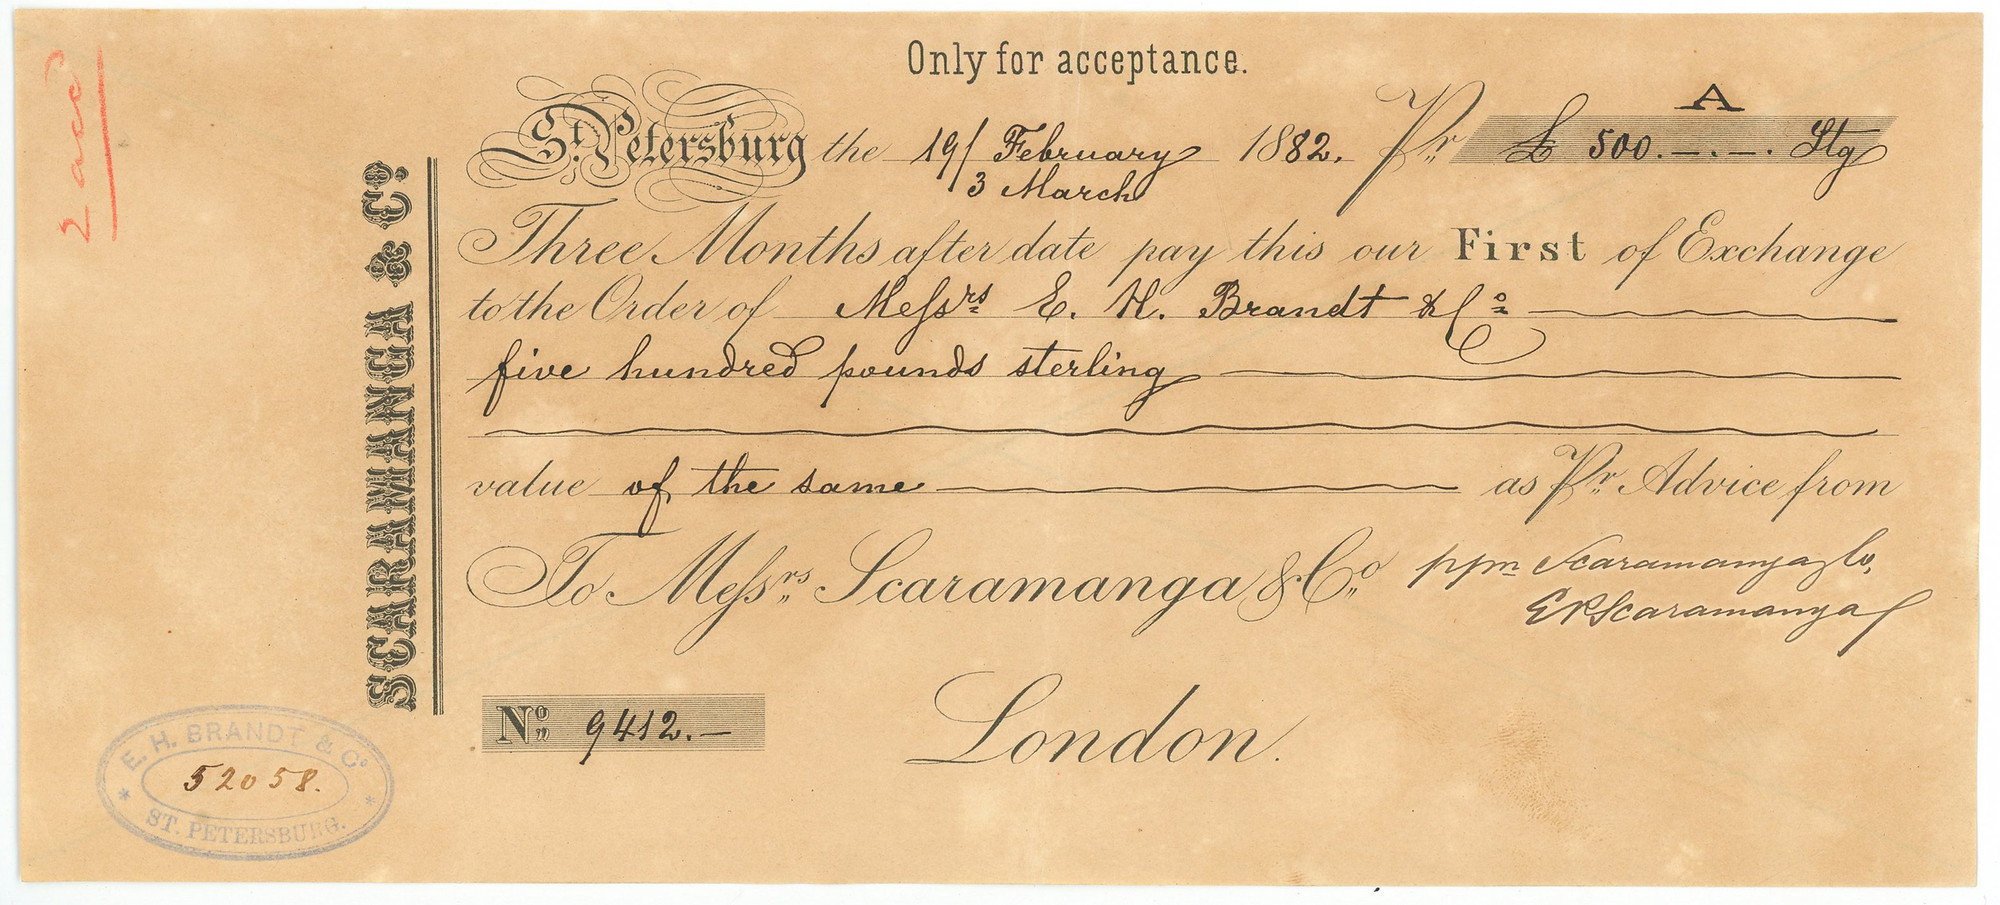 Only for acceptance.
A
St. Petersburg the 19/ February 1882. Pr £ 500.—.—. Stg
3 March
Three Months after date pay this our First of Exchange
to the Order of Messrs E. H. Brandt & Co
five hundred pounds sterling
value of the same as Pr Advice from
To Messrs Scaramanga & Co ppm Scaramanga Co,
EPScaramanga
No 9412.—
London.
SCARAMANGA & Co.
2 acc
E. H. BRANDT & Co
52058.
ST. PETERSBURG.